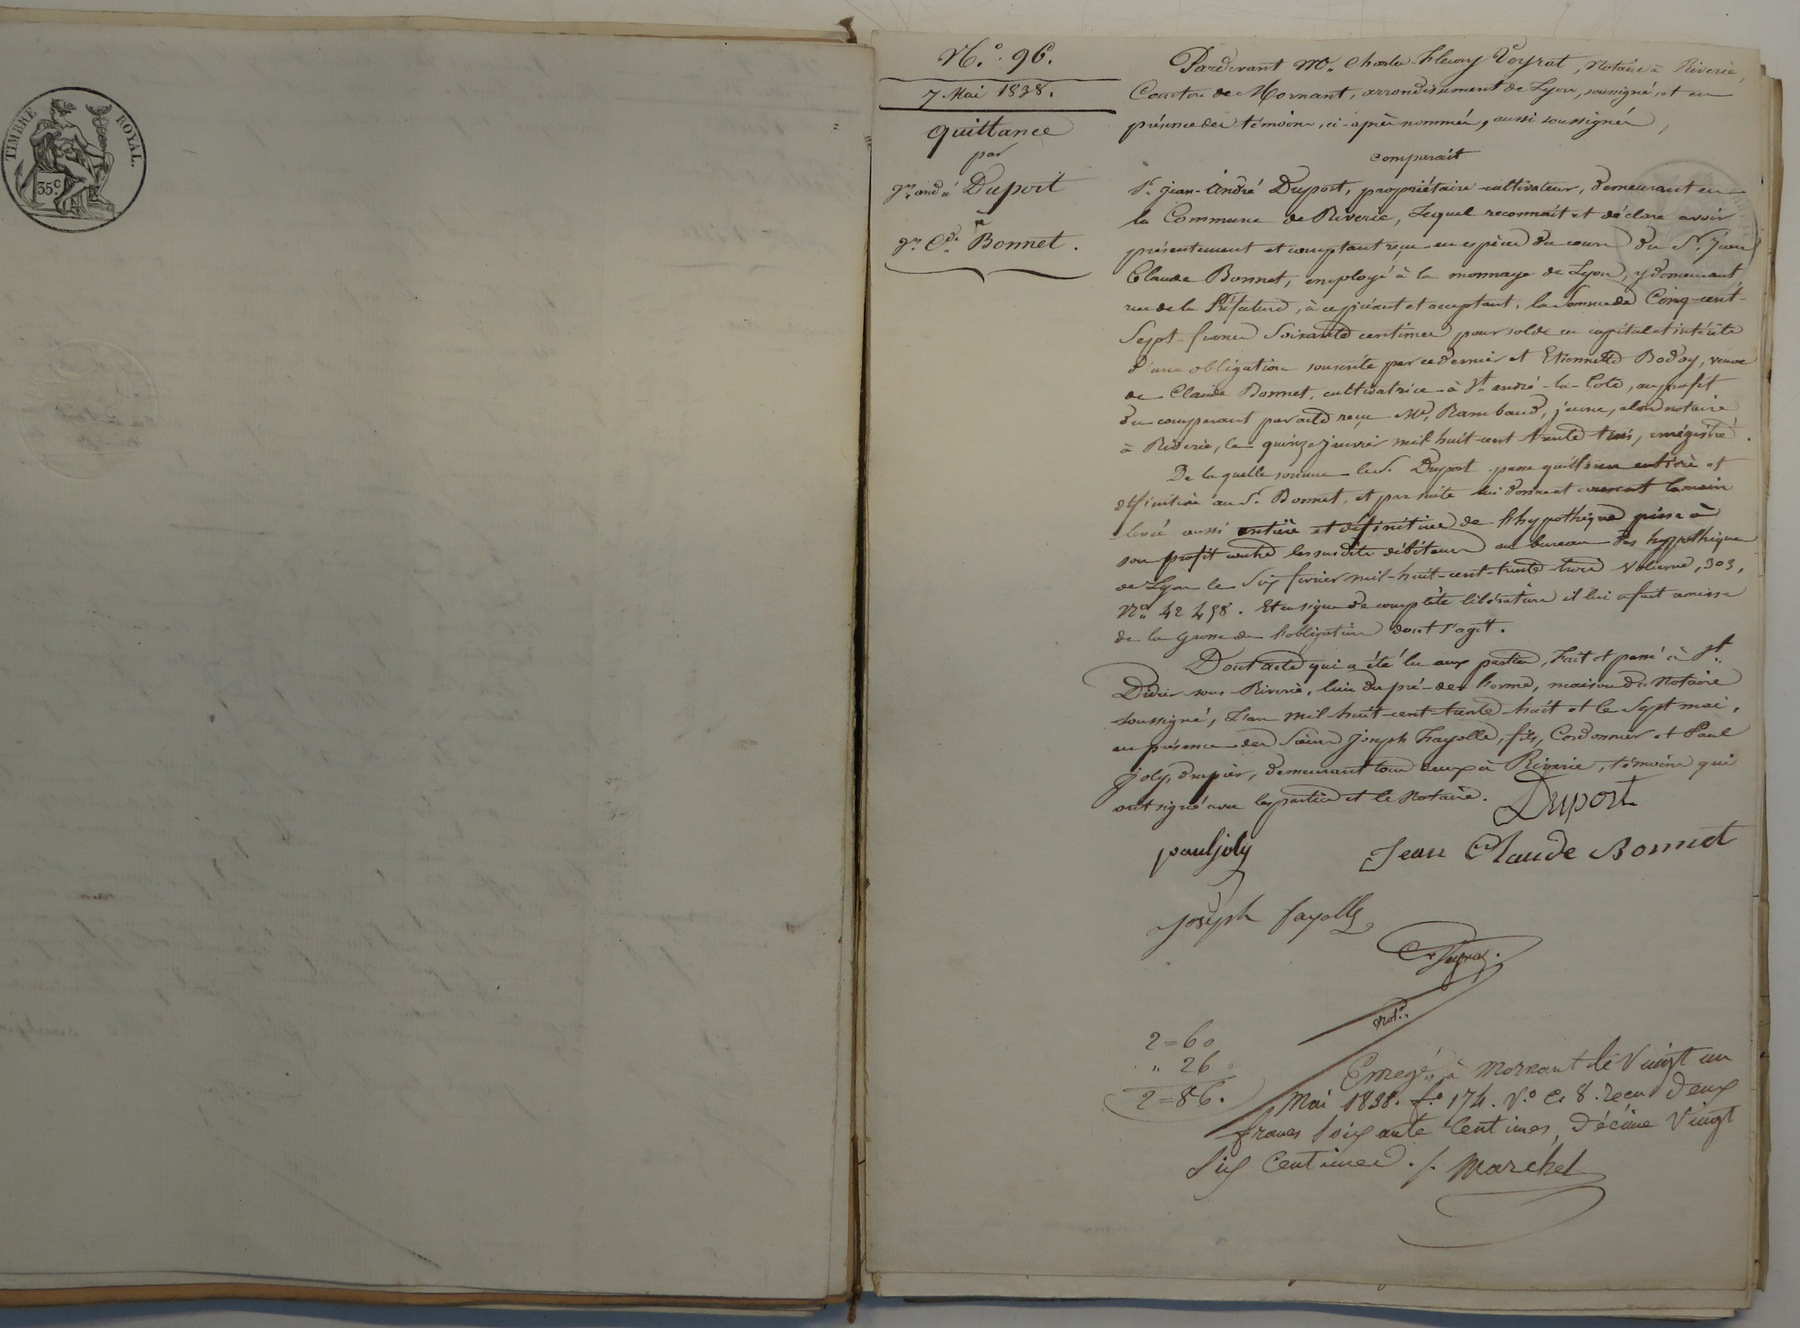 TIMBRE ROYAL.
35c.
N.o 96.
7 Mai 1838.
Quittance
par
Jn andré Duport
à
Jn Cde Bonnet.
Pardevant Me. Charles Fleury Veyrat, Notaire à Riverie,
Canton de Mornant, arrondissement de Lyon, soussigné, et en
présence des témoins, ci-après nommés, aussi soussignés,
comparait
Sr. jean-André Duport, propriétaire-cultivateur, demeurant en
la Commune de Riverie, Lequel reconnait et déclare avoir
présentement et comptant reçu en espèces du cours du Sr. Jean
Claude Bonnet, employé à la monnaye de Lyon, y demeurant
rue de la Préfecture, à ce présent et acceptant, la somme de Cinq-cent-
Sept-francs Soixante centimes pour solde en capital et intérêts
d'une obligation souscrite par ce dernier et Etiennette Boday, veuve
de Claude Bonnet, cultivatrice à St. andré-la-Cote, au profit
du comparant par acte reçu Me. Rambaud, jeune, alors notaire
à Riverie, le quinze janvier mil huit cent trente trois, enrégistré.
De laquelle somme le Sr. Duport passe quittance entière et
définitive au Sr. Bonnet, et par suite lui donne et consent la main
levée aussi entière et définitive de l'hypothèque prise à
son profit contre les susdits débiteurs au bureau des hypothèques
de Lyon le Six fevrier mil-huit-cent-trente-trois Volume, 303,
No. 42 458. Et en signe de complète libération il lui a fait remise
de la Grosse de l'obligation dont s'agit.
Dont acte qui a été lu aux parties, Fait et passé à St.
Didier sous-Riverie, lieu du pré-des-Lorme, maison du Notaire
soussigné, L'an mil-huit-cent-trente-huit et le Sept mai,
en présence des Sieurs Joseph Fayolle, fils, Cordonnier et Paul
Joly, drapier, demeurant tous deux à Riverie, témoins qui
ont signé avec les parties et le Notaire. Duport
paul joly Jean Claude Bonnet
joseph fayolle
Veyrat.
Not.re
2=60
" 26
2=86.
Enregé. à Mornant le Vingt un
Mai 1838. fo. 174. Vo. C. 8. reçu deux
francs Soixante Centimes, Décime Vingt
Six Centimes ./. Marchel